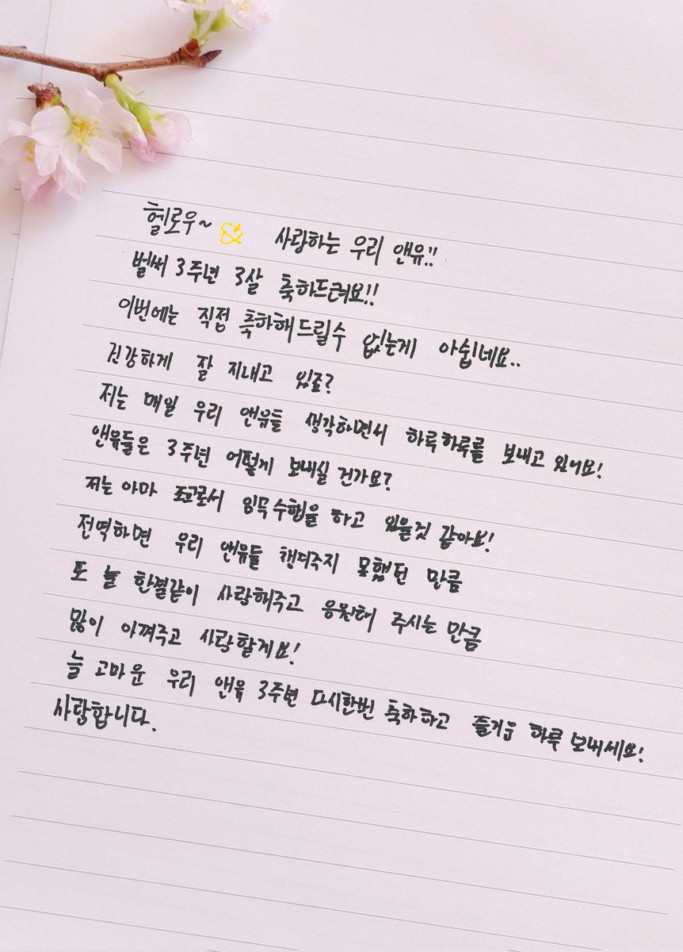 헬로우~ 사랑하는 우리 앤유!!
벌써 3주년 3살 축하드려요!!
이번에는 직접 축하해드릴수 없는게 아쉽네요..
건강하게 잘 지내고 있죠?
저는 매일 우리 앤유들 생각하면서 하루하루를 보내고 있어요!
앤유들은 3주년 어떻게 보내실 건가요?
저는 아마 조교로서 임무수행을 하고 있을것 같아요!
전역하면 우리 앤유들 챙겨주지 못했던 만큼
또 늘 한결같이 사랑해주고 응원해 주시는 만큼
많이 아껴주고 사랑할게요!
늘 고마운 우리 앤유 3주년 다시한번 축하하고 즐거운 하루 보내세요!
사랑합니다.